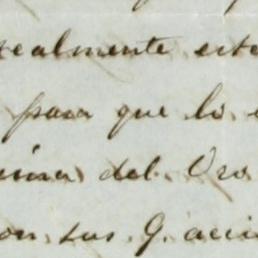 realmente este
para que lo
del Oro
con sus G. acci